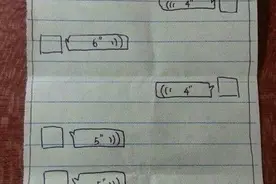 ((( 4"
6" ))
((( 4"
5" ))
5" ))